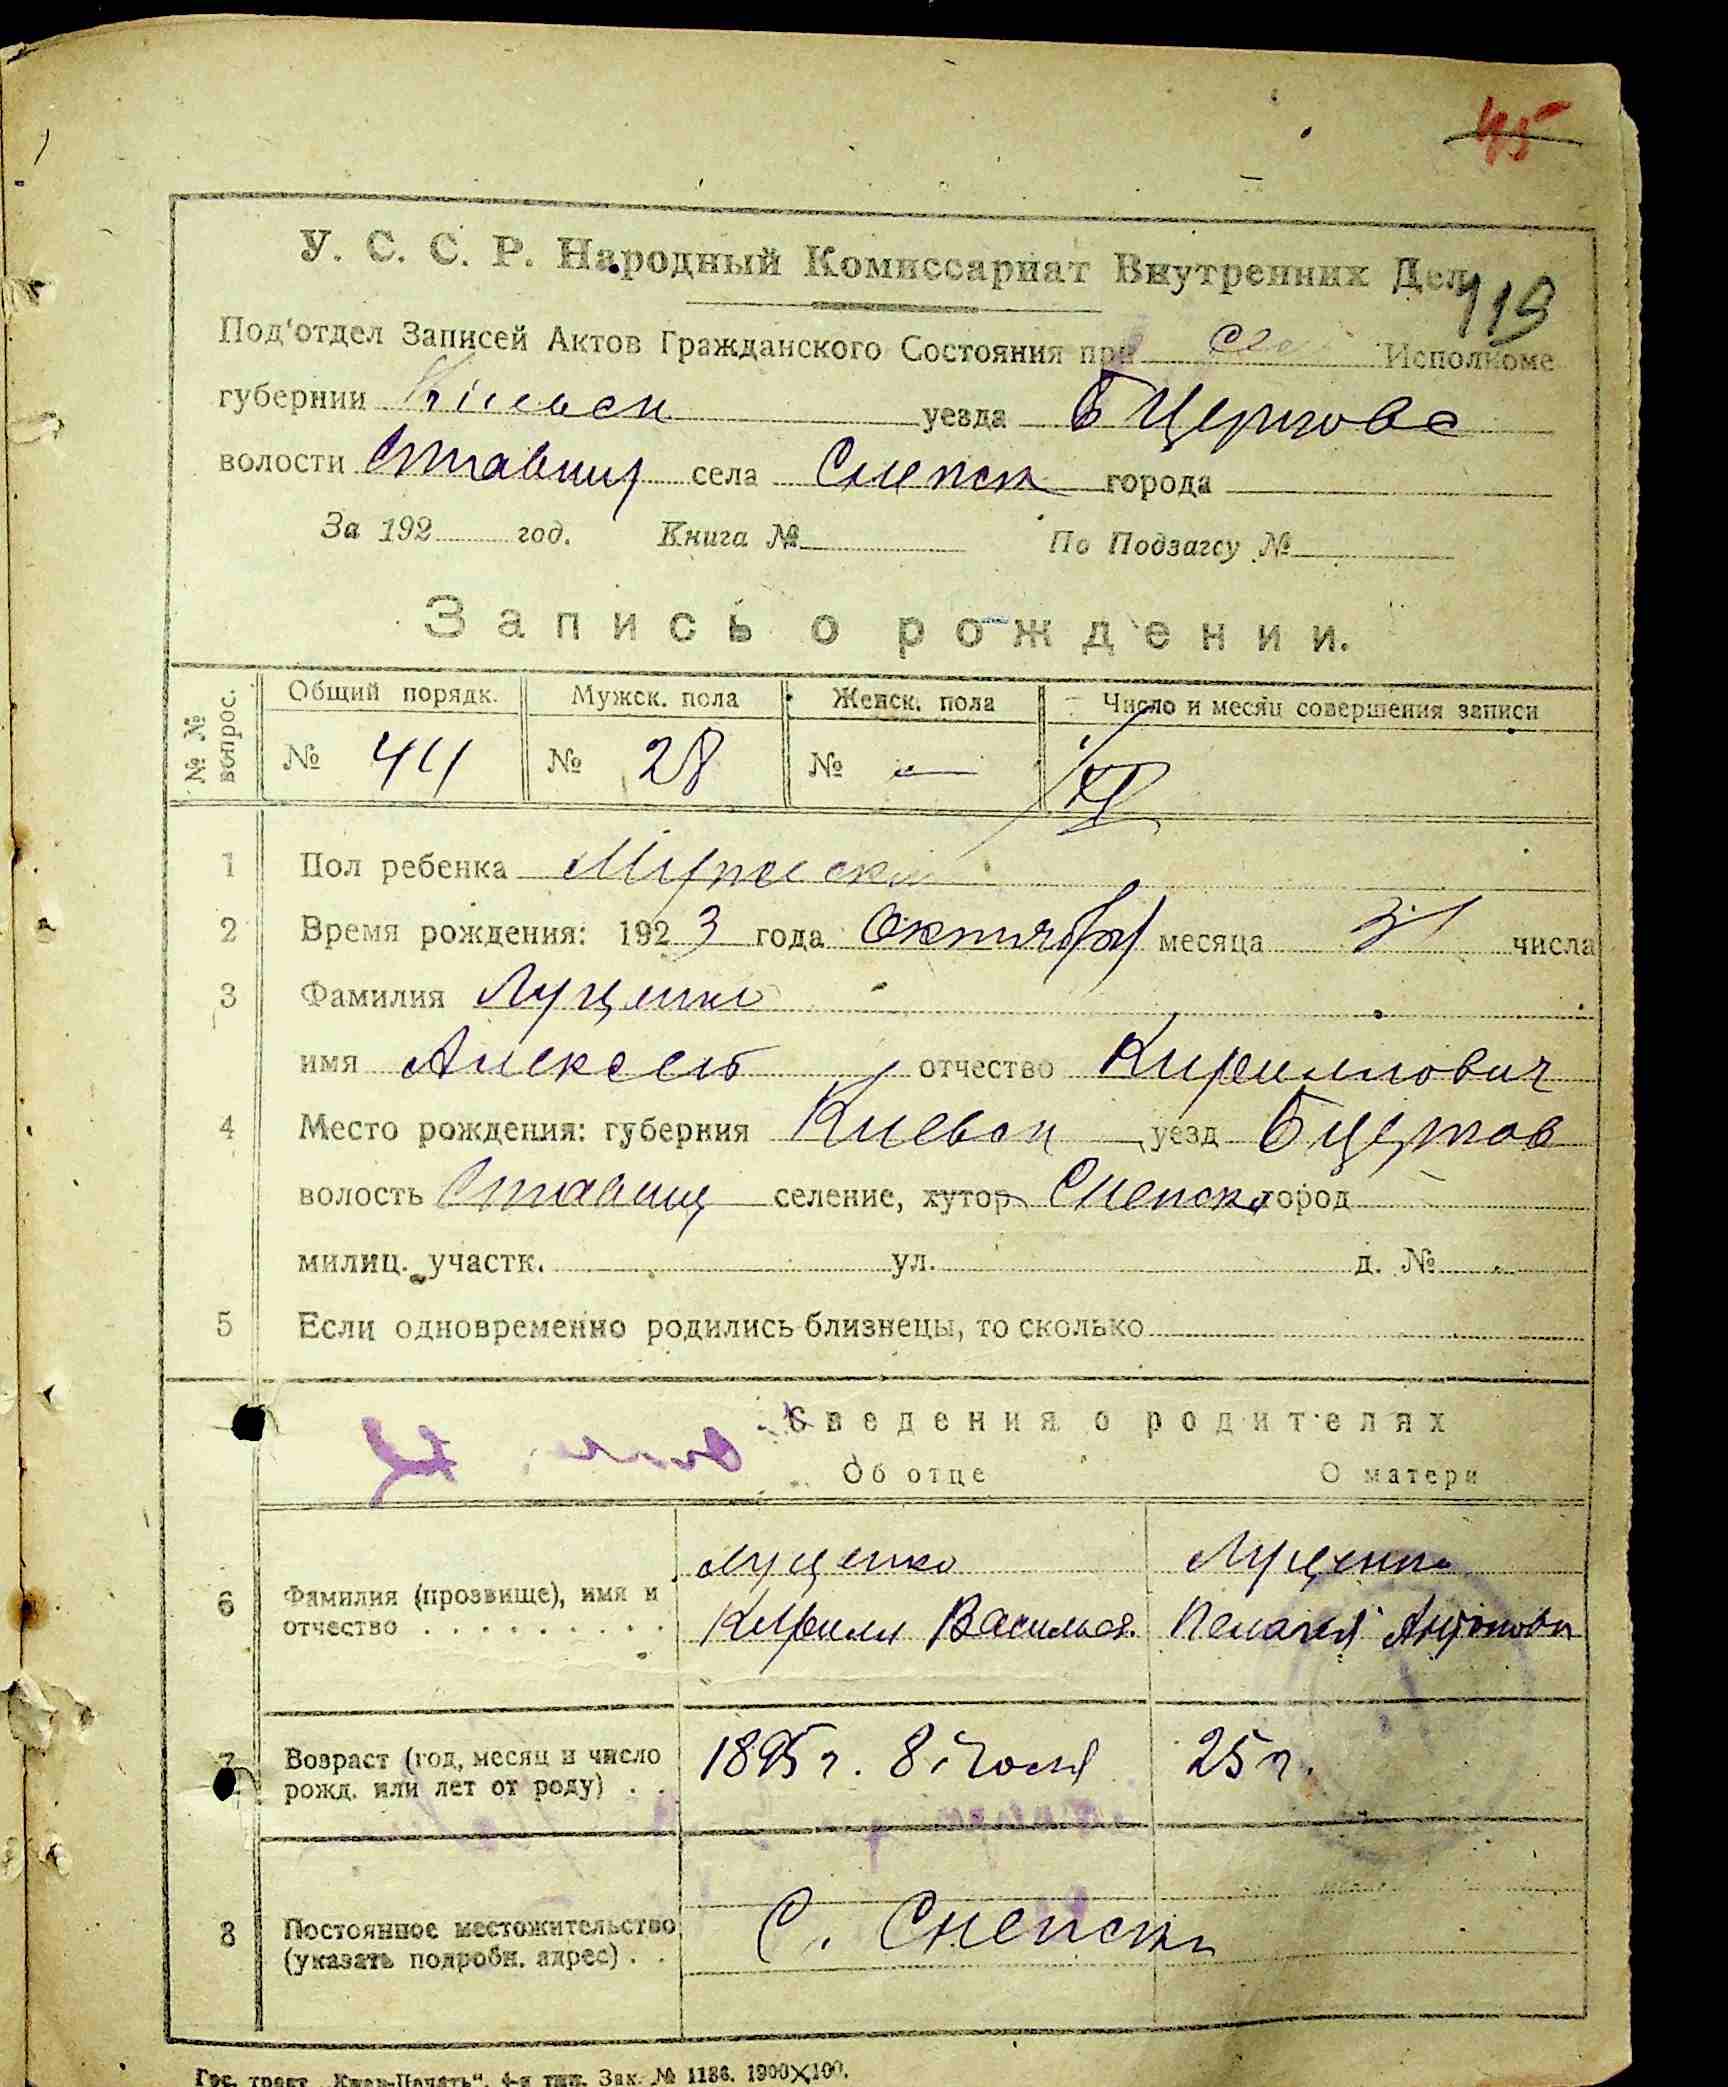 45
У. С. С. Р. Народный Комиссариат Внутренних Дел
119
Под'отдел Записей Актов Гражданского Состояния при Исполкоме
губернии уезда Б Церкове
волости Ставищ села города
За 192 год. Книга № По Подзагсу №
Запись о рождении.
№ № вопрос. Общий порядк. Мужск. пола Женск. пола Число и месяц совершения записи
№ 44 № 28 № —
1 Пол ребенка Мужеск
2 Время рождения: 1923 года Октября месяца 31 числа
3 Фамилия Луценко
имя Алексей отчество Кириллович
4 Место рождения: губерния Киевск уезд Б церков
волость Ставищ селение, хутор город
милиц. участк. ул. д. №
5 Если одновременно родились близнецы, то сколько
Сведения о родителях
Об отце О матери
6 Фамилия (прозвище), имя и отчество Луценко Луценко
Кирилл Васильев. Пелагея Антонови
7 Возраст (год, месяц и число рожд. или лет от роду) 1895 г. 8 Июля 25 л.
8 Постоянное местожительство (указать подробн. адрес) С.
Гос. трест „Киев-Печать“, 4-я тип. Зак. № 1186. 1900×100.